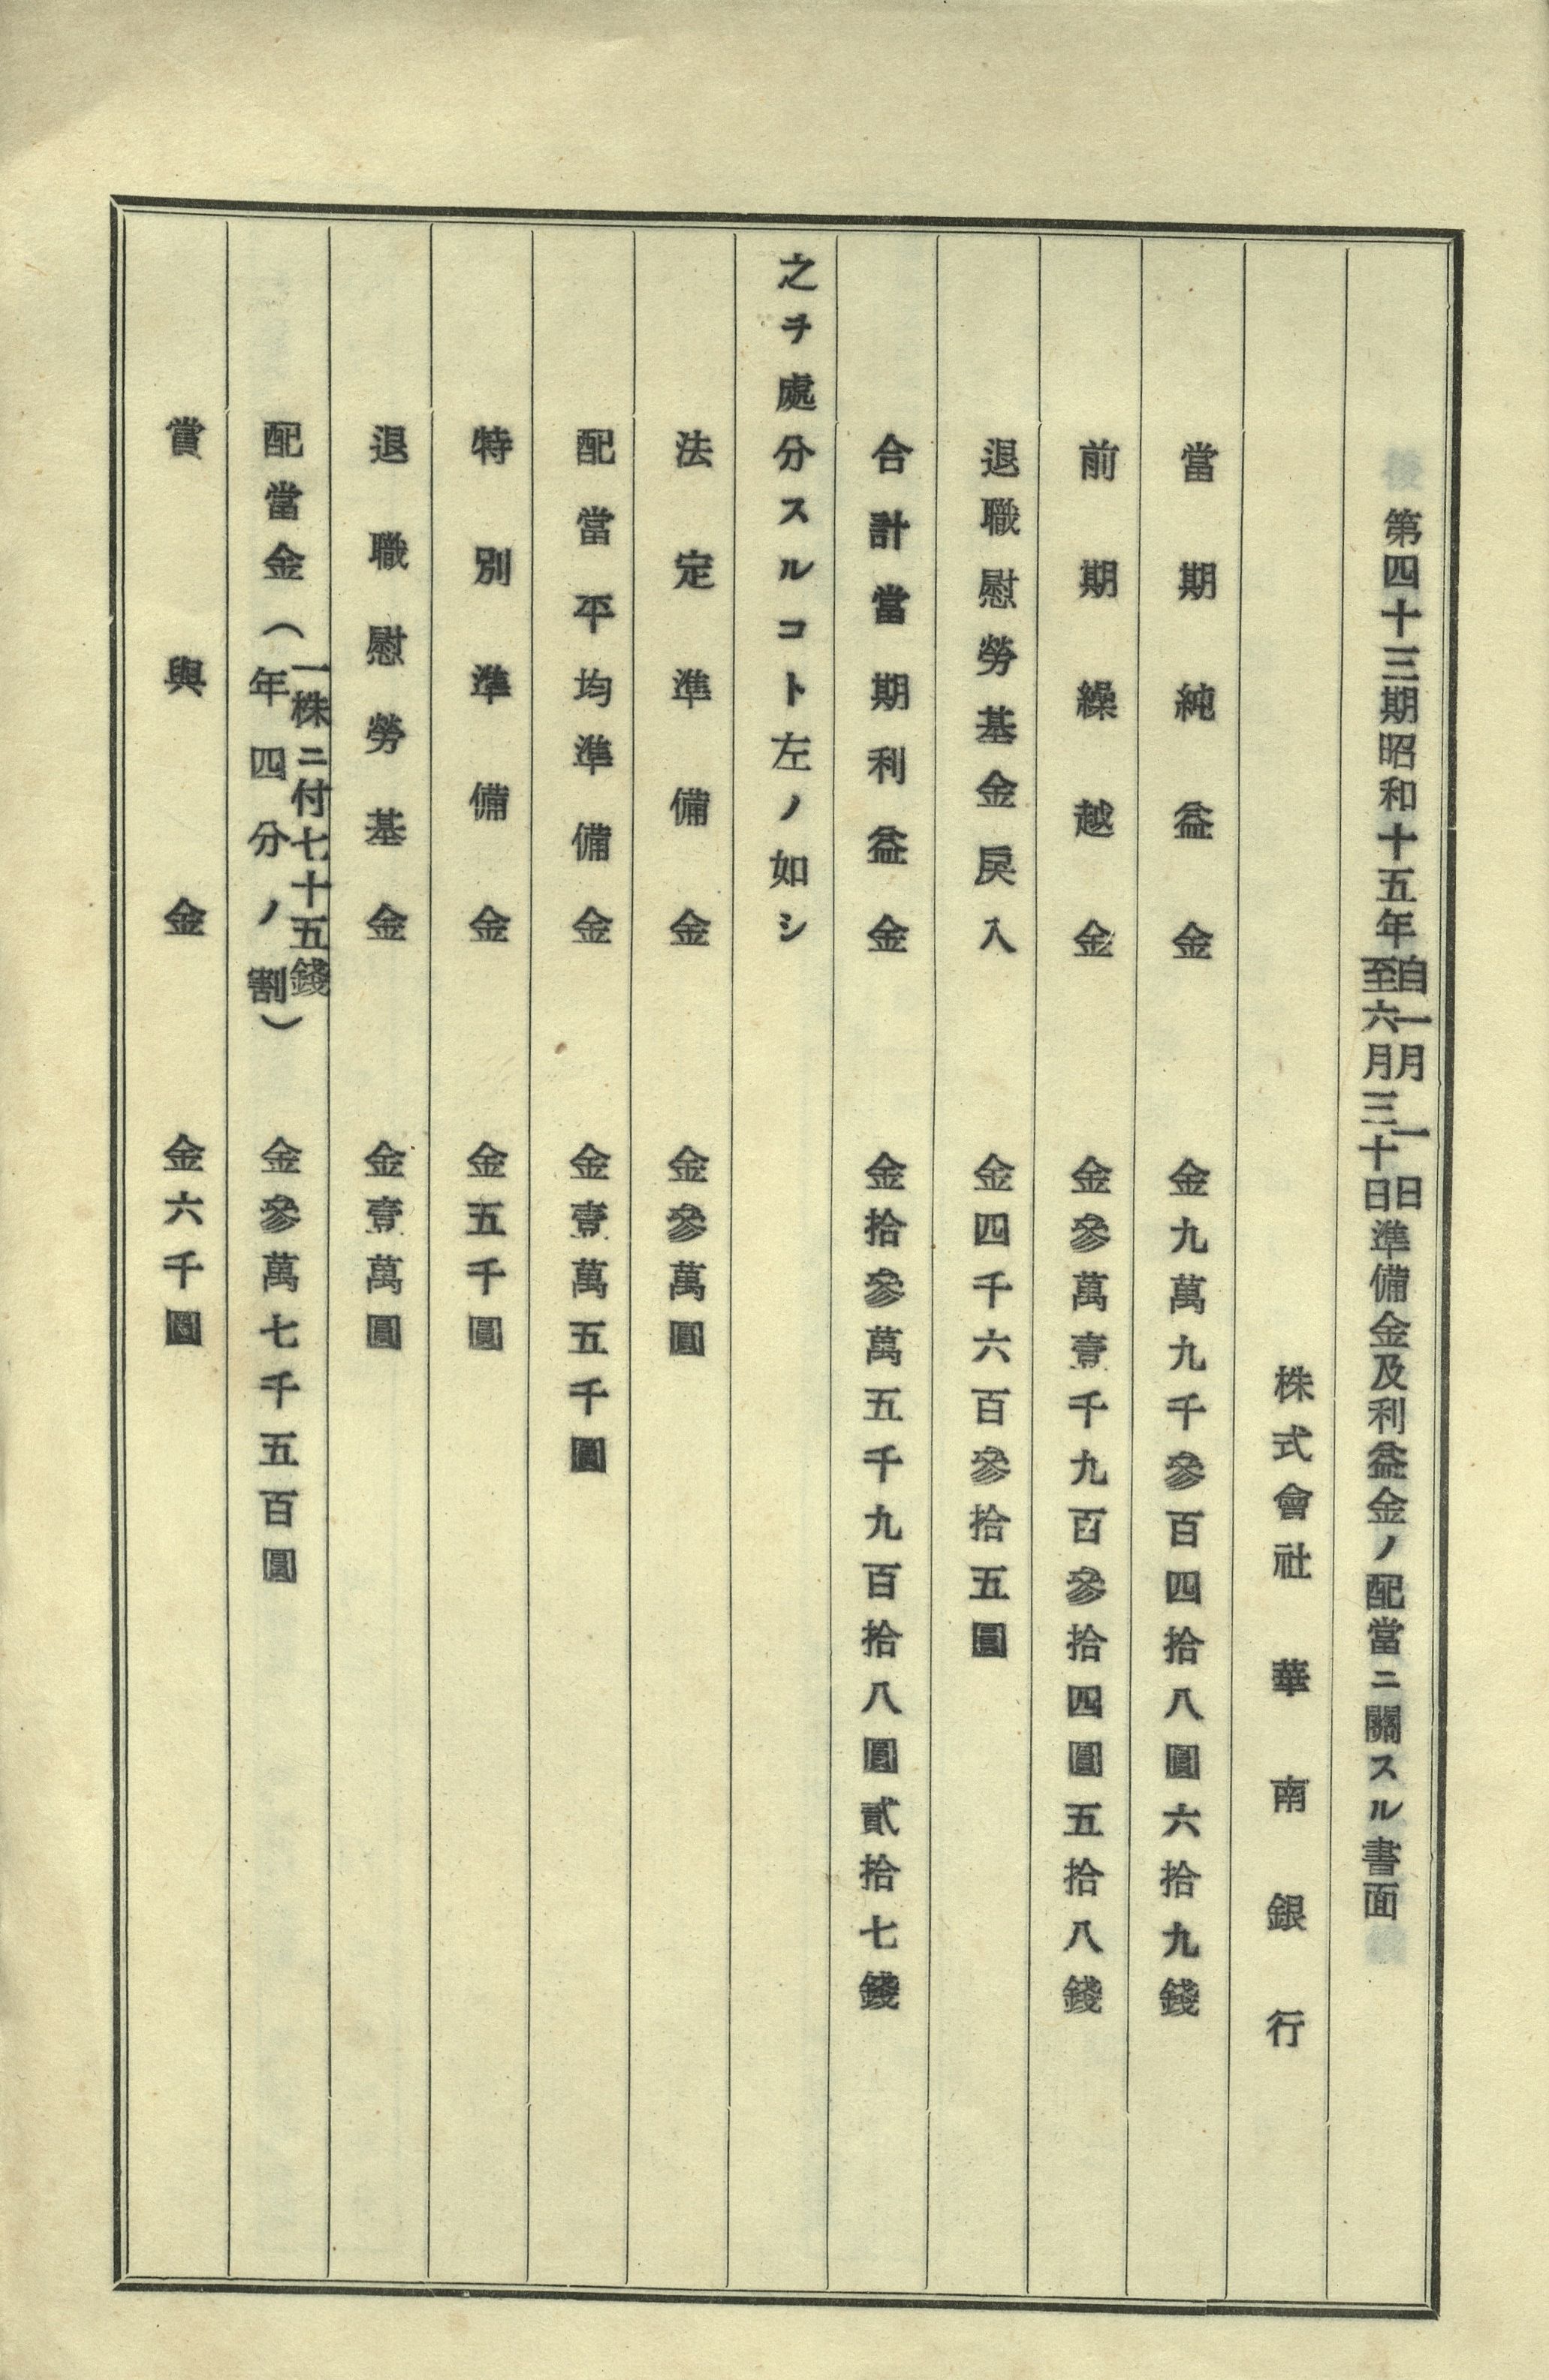 第四十三期昭和十五年自一月一日至六月三十日準備金及利益金ノ配當ニ關スル書面
株式會社華南銀行
當期純益金 金九萬九千參百四拾八圓六拾九錢
前期繰越金 金參萬壹千九百參拾四圓五拾八錢
退職慰勞基金戻入 金四千六百參拾五圓
合計當期利益金 金拾參萬五千九百拾八圓貳拾七錢
之ヲ處分スルコト左ノ如シ
法定準備金 金參萬圓
配當平均準備金 金壹萬五千圓
特別準備金 金五千圓
退職慰勞基金 金壹萬圓
配當金（一株ニ付七十五錢年四分ノ割） 金參萬七千五百圓
賞與金 金六千圓